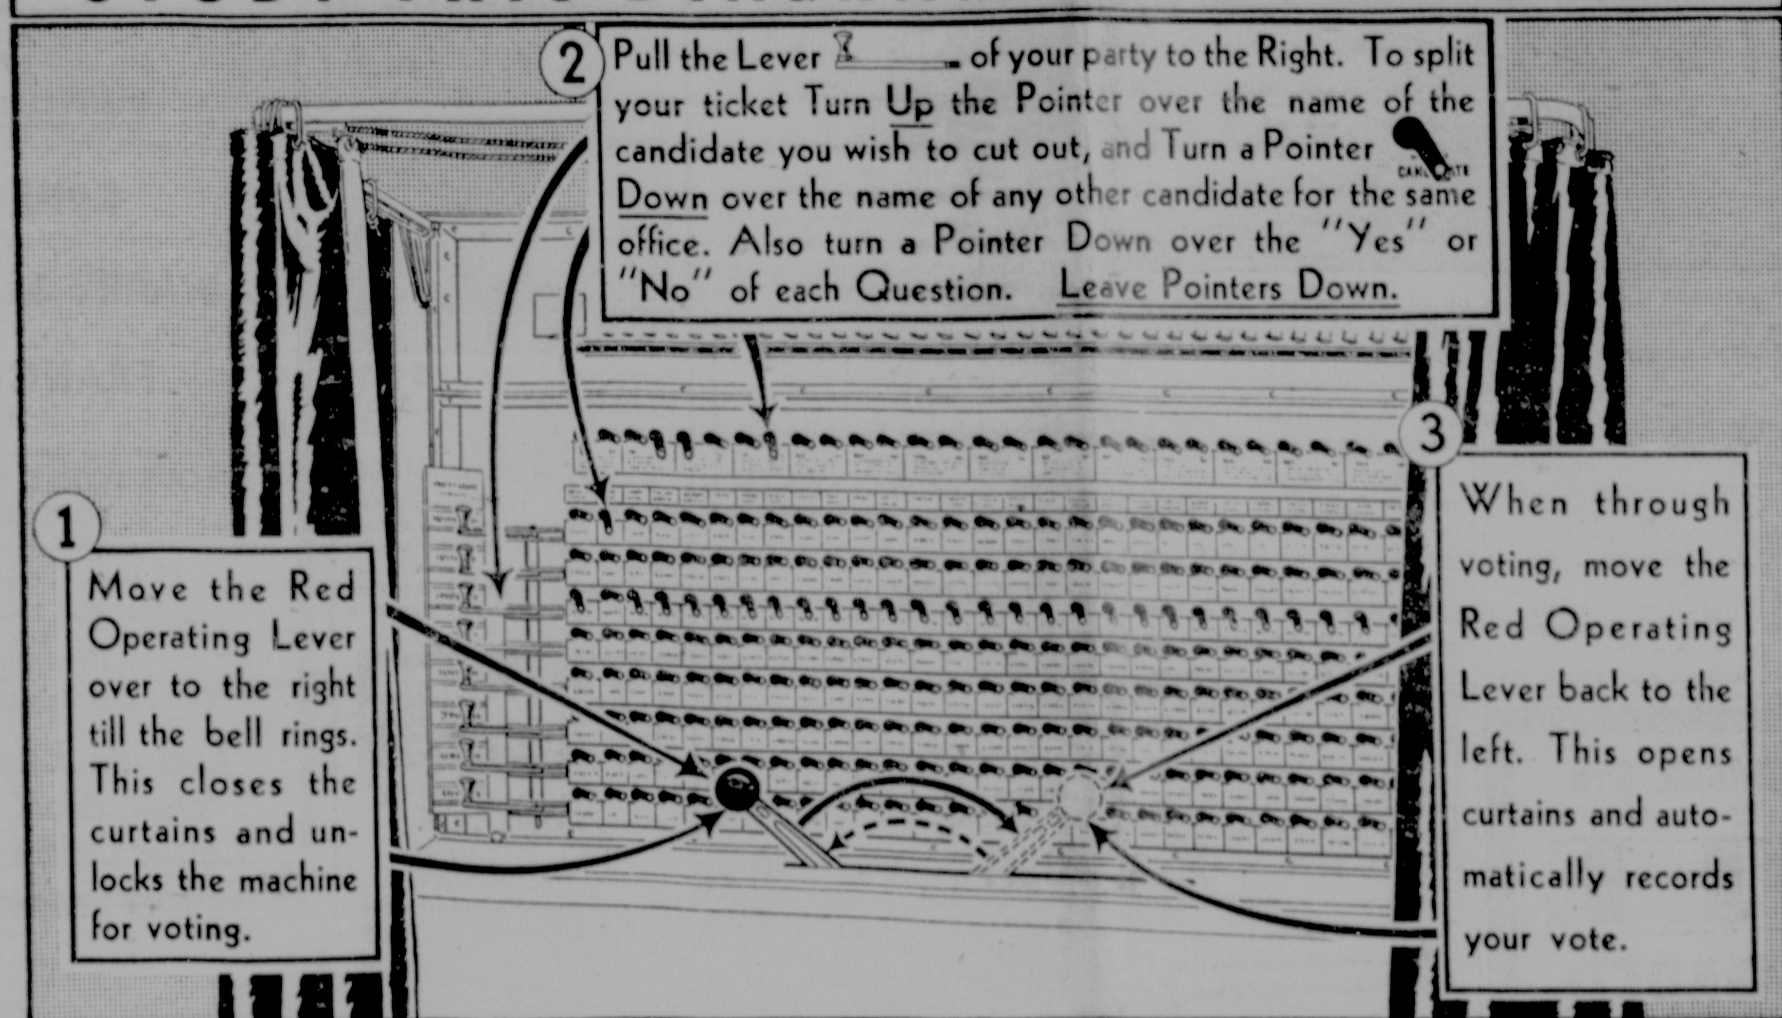 2
Pull the Lever of your party to the Right. To split
your ticket Turn Up the Pointer over the name of the
candidate you wish to cut out, and Turn a Pointer
Down over the name of any other candidate for the same
office. Also turn a Pointer Down over the "Yes" or
"No" of each Question. Leave Pointers Down.
1
Move the Red
Operating Lever
over to the right
till the bell rings.
This closes the
curtains and un-
locks the machine
for voting.
3
When through
voting, move the
Red Operating
Lever back to the
left. This opens
curtains and auto-
matically records
your vote.